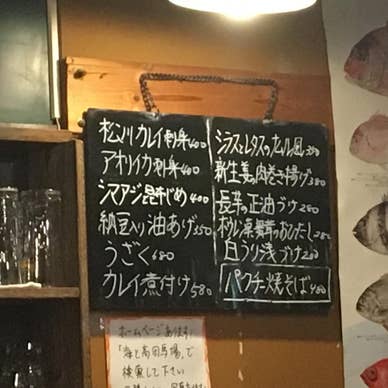 松川カレイ刺身400
アオリイカ刺身400
シマアジ昆布じめ400
納豆入り油あげ350
うざく680
カレイ煮付け580
シラスとレタスのナムル風350
新生姜の肉巻き揚げ380
長芋の正油づけ280
ホウレン草舞茸のおひたし280
白うり浅づけ200
パクチー焼そば480
ホームページあります。
「海と高田馬場」で
検索して下さい